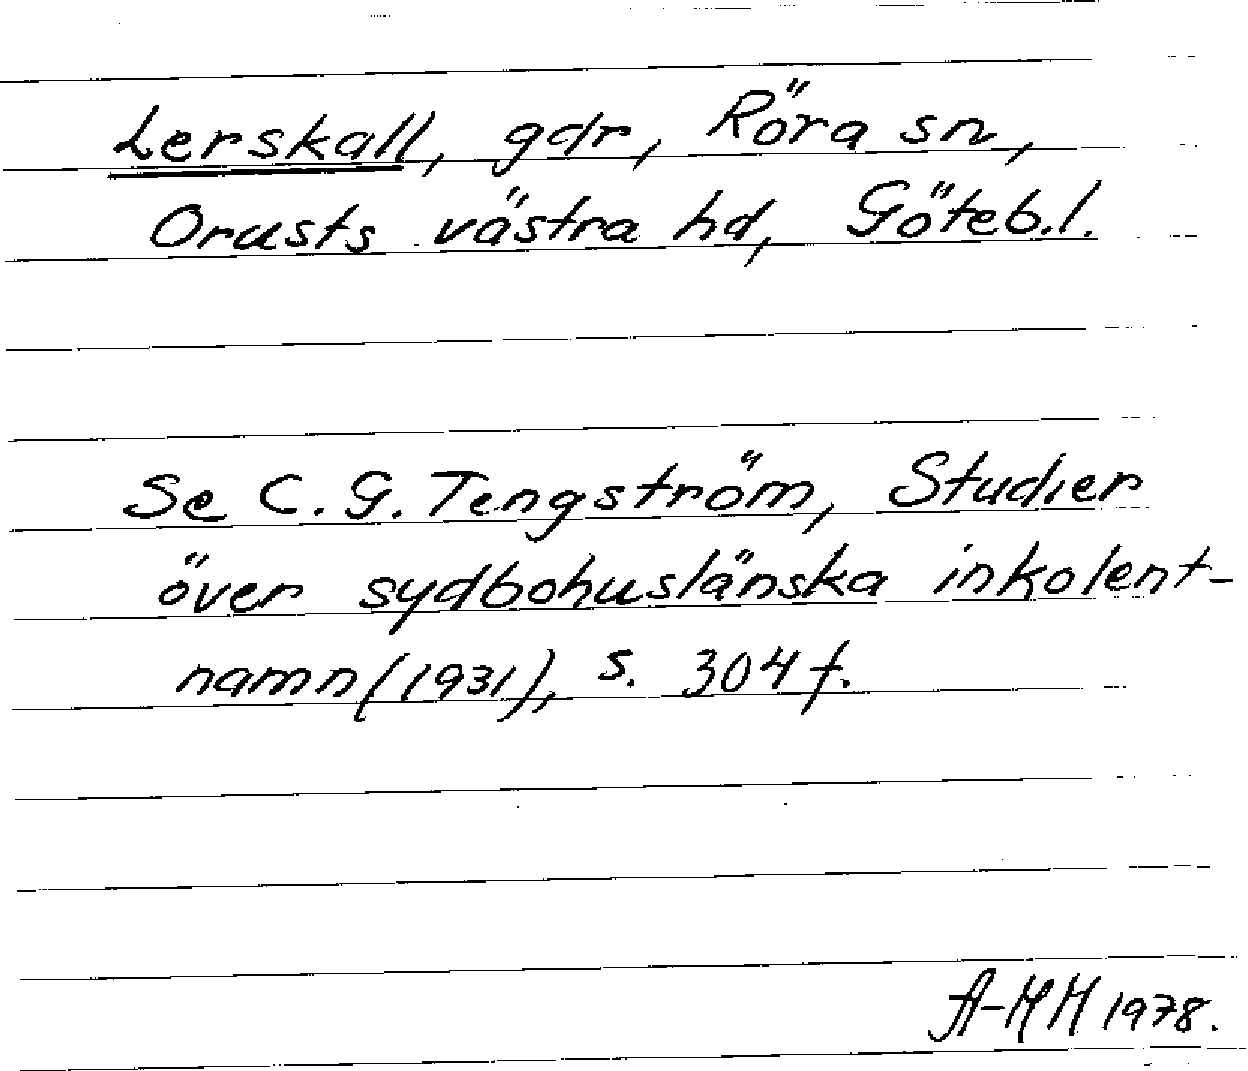 Lerskall, gdr, Röra sn,
Orusts västra hd, Göteb.l.
Se C. G. Tengström, Studier
över sydbohuslänska inkolent-
namn (1931), s. 304 f.
A-MH 1978.